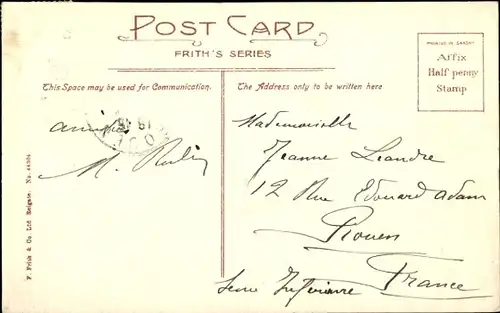 POST CARD
FRITH'S SERIES
This Space may be used for Communication.
The Address only to be written here
PRINTED IN SAXONY
Affix
Half penny
Stamp
F. Frith & Co. Ltd. Reigate. No. 44304
M.
Mademoiselle
Jeanne Leandre
12 Rue Edouard Adam
Rouen
Seine Inferieure
France